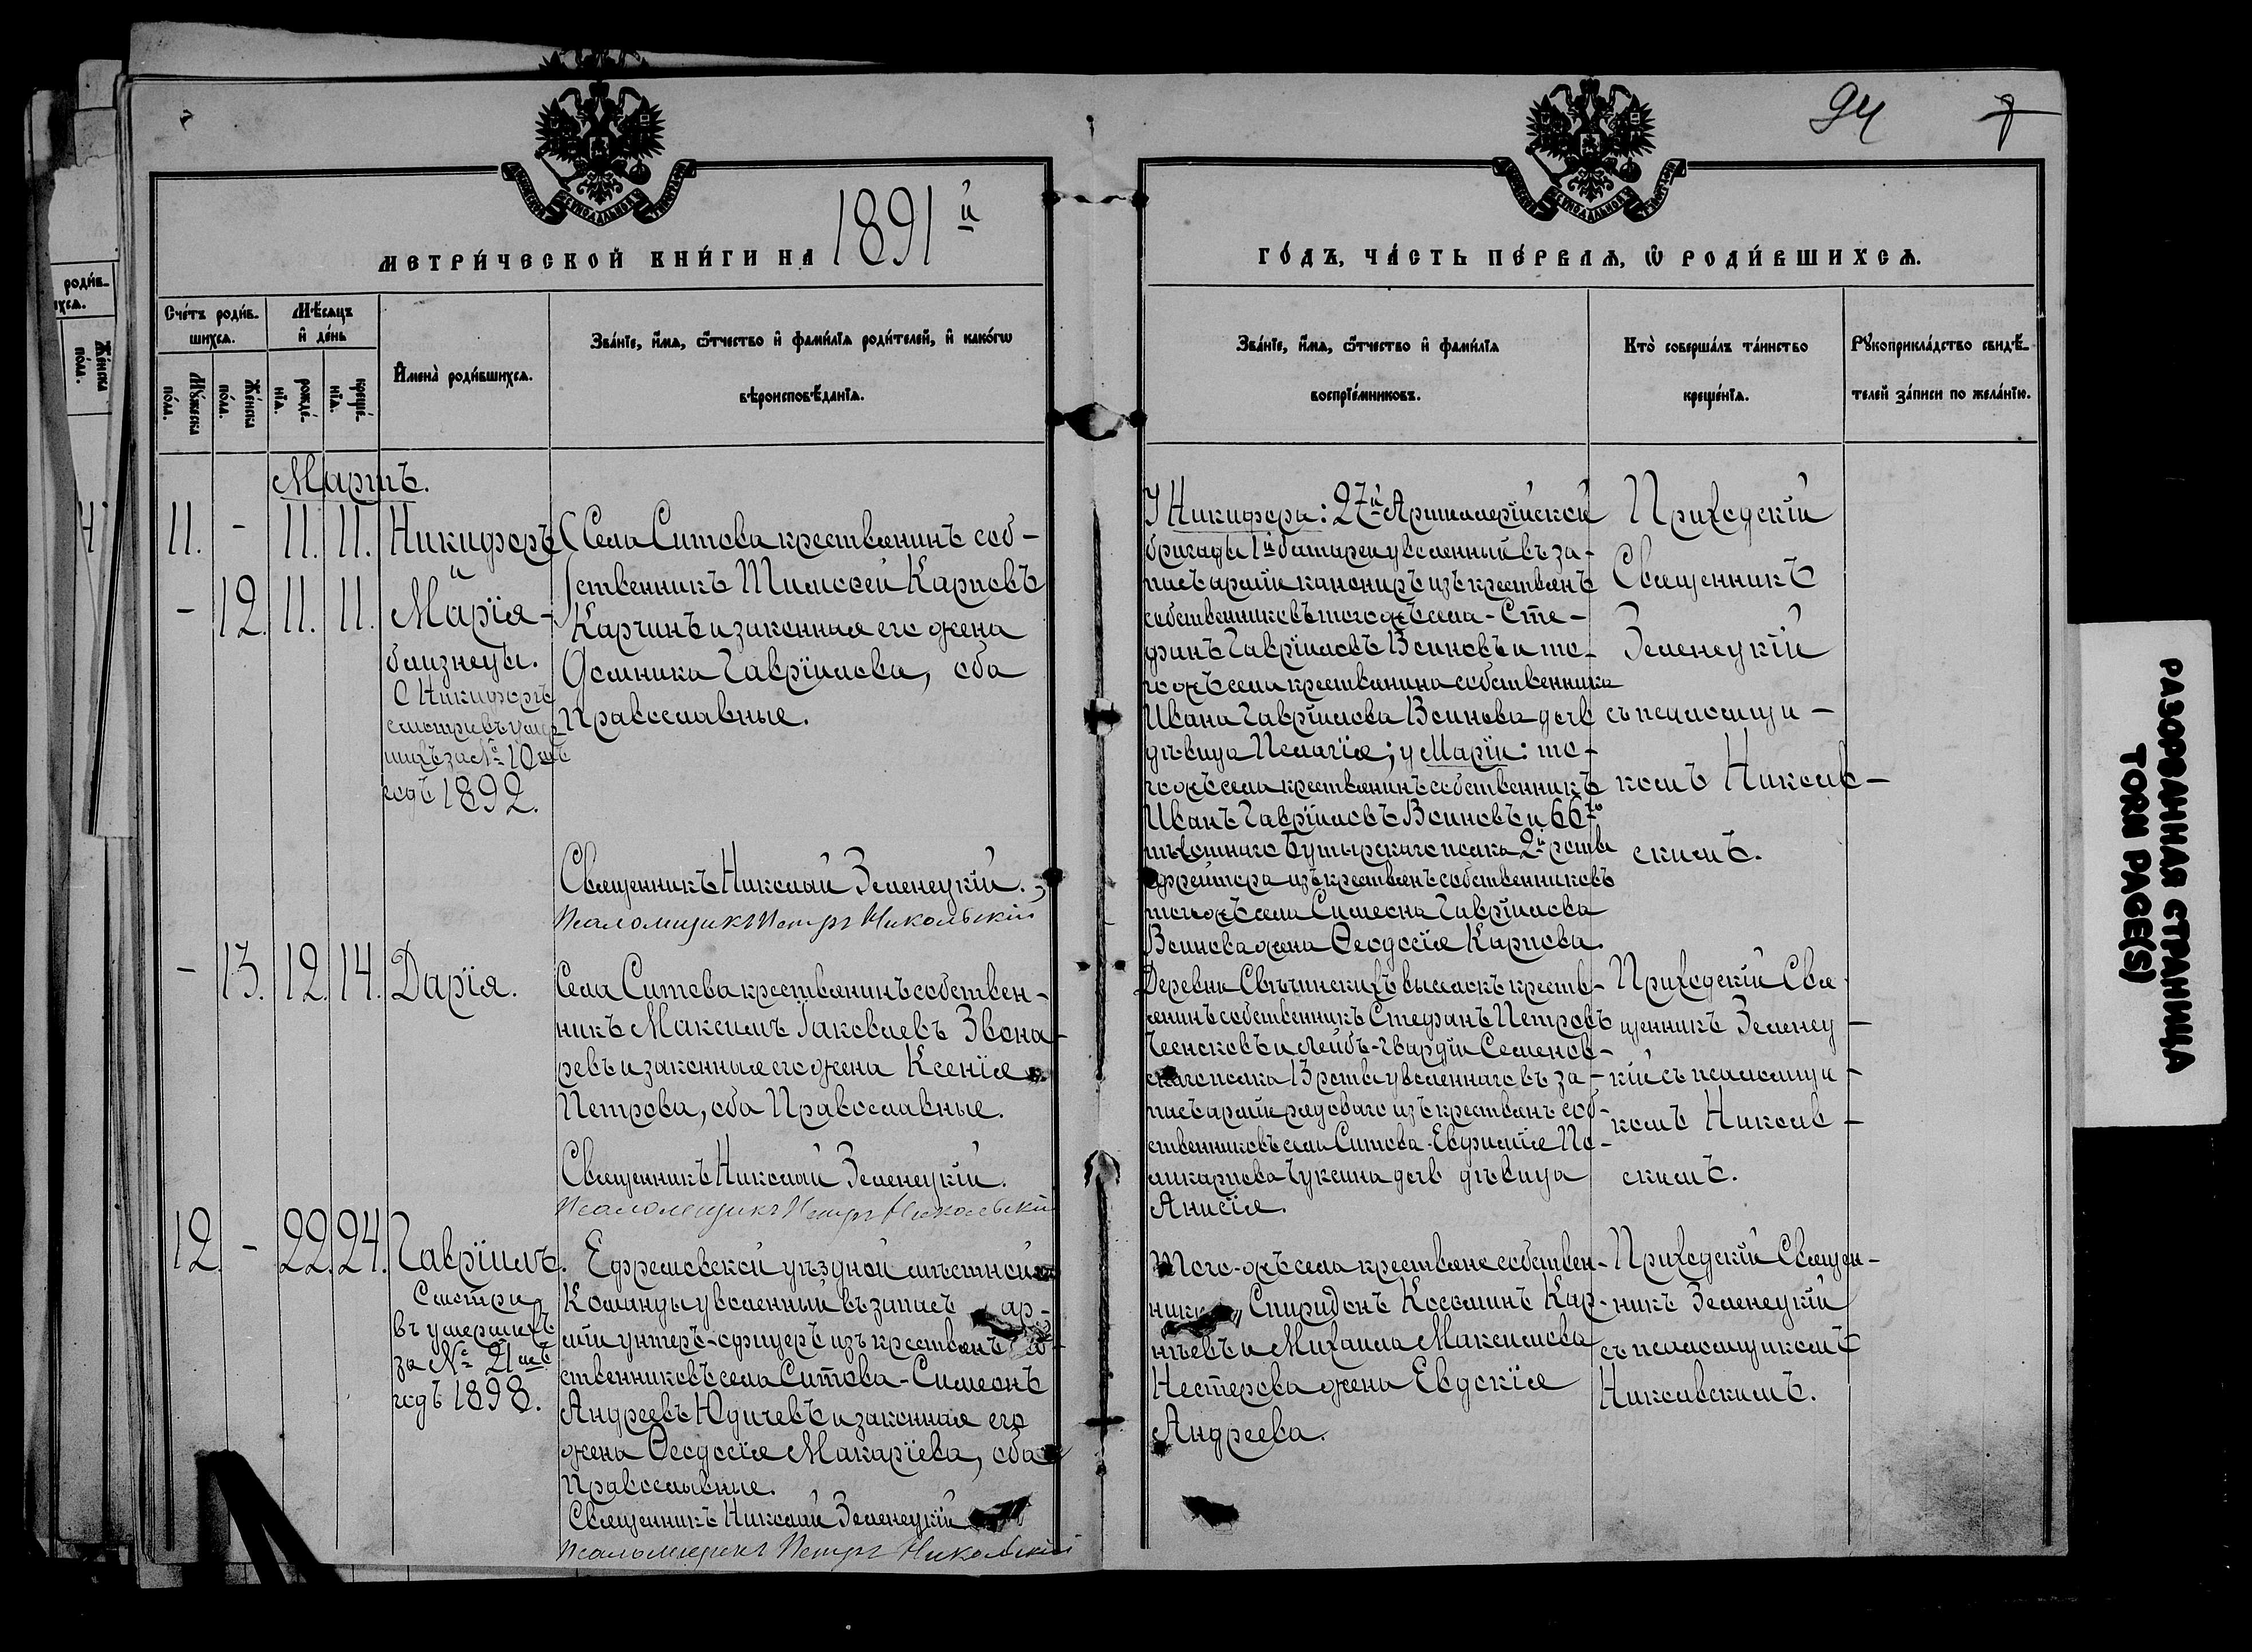 94
МЕТРИ́ЧЕСКОЙ КНИ́ГИ НА 1891й
ГО́ДЪ, ЧА́СТЬ ПЕ́РВАѦ, Ѡ РОДИ́ВШИХСѦ.
Сче́тъ роди́в-
шихсѧ.
Мѣ́сѧцъ
и҆ де́нь
Му́жеска
по́ла.
Же́нска
по́ла.
рожде́-
нїѧ.
креще́-
нїѧ.
И҆мена̀ роди́вшихсѧ.
Зва́нїе, и҆́мѧ, ѻ҆́тчество и҆ фами́лїѧ роди́телей, и҆ како́гѡ
вѣроисповѣ́данїѧ.
Зва́нїе, и҆́мѧ, ѻ҆́тчество и҆ фами́лїѧ
воспрїе́мниковъ.
Кто̀ соверша́лъ та́инство
креще́нїѧ.
Рꙋкоприкла́дство свидѣ́-
телей за́писи по жела́нїю.
Мартъ.
11. - 11. 11. Никифоръ
и
- 12. 11. 11. Марія-
близнецы.
Никифоръ
смотри въ умер
шихъ за № 10 мъ
годъ 1892.
Села Ситова крестьянинъ соб-
ственникъ Тимоѳей Карповъ
Карчинъ и законная его жена
Домника Гавріилова, оба
Православные.
Священникъ Николай Зеленецкій.
Псаломщикъ Петръ Никольскій
У Никифора: 27й Артиллерійской
бригады 1й батареи уволенный въ за-
пасъ арміи канониръ изъ крестьянъ
собственниковъ того-жъ села - Сте-
фанъ Гавріиловъ Воиновъ и то-
го-жъ села крестьянина собственника
Ивана Гавріилова Воинова дочь
дѣвица Пелагія; у Маріи: то-
го-жъ села крестьянинъ собственникъ
Иванъ Гавріиловъ Воиновъ и 66го
пѣхотнаго Бутырскаго полка 2й роты
ефрейтора изъ крестьянъ собственниковъ
того-жъ села Симеона Гавріилова
Воинова жена Ѳеодосія Карпова.
Приходскій
Священникъ
Зеленецкій
съ псаломщи-
комъ Николь-
скимъ.
- 13. 12. 14. Дарія.
Села Ситова крестьянинъ собствен-
никъ Максимъ Іаковлевъ Звона-
ревъ и законная его жена Ксенія
Петрова, оба Православные.
Священникъ Николай Зеленецкій.
Псаломщикъ Петръ Никольскій
Деревни Свѣчинскихъ выселокъ кресть-
янинъ собственникъ Стефанъ Петровъ
и Лейбъ-Гвардіи Семенов-
скаго полка 13 роты уволеннаго въ за-
пасъ арміи рядоваго изъ крестьянъ соб-
ственниковъ села Ситова - Евфимія По-
ликарпова Чукина дочь дѣвица
Анисія.
Приходскій Свя-
щенникъ Зеленец-
кій съ псаломщи-
комъ Николь-
скимъ.
12. - 22. 24. Гавріилъ.
Смотри
въ умершихъ
за № 21 мъ
годъ 1898.
Ефремовской уѣздной мѣстной
Команды уволенный въ запасъ ар-
міи унтеръ-офицеръ изъ крестьянъ соб-
ственниковъ села Ситова - Симеонъ
Андреевъ Юдичевъ и законная его
жена Ѳеодосія Макаріева, оба
Православные.
Священникъ Николай Зеленецкій
Псаломщикъ Петръ Никольскій
Того-жъ села крестьяне собствен-
ники Спиридонъ Косминъ Кар-
нѣевъ и Михаила Максимова
Нестерова жена Евдокія
Андреева.
Приходскій Священ-
никъ Зеленецкій
съ псаломщикомъ
Никольскимъ.
РАЗОРВАННАЯ СТРАНИЦА
TORN PAGE(S)